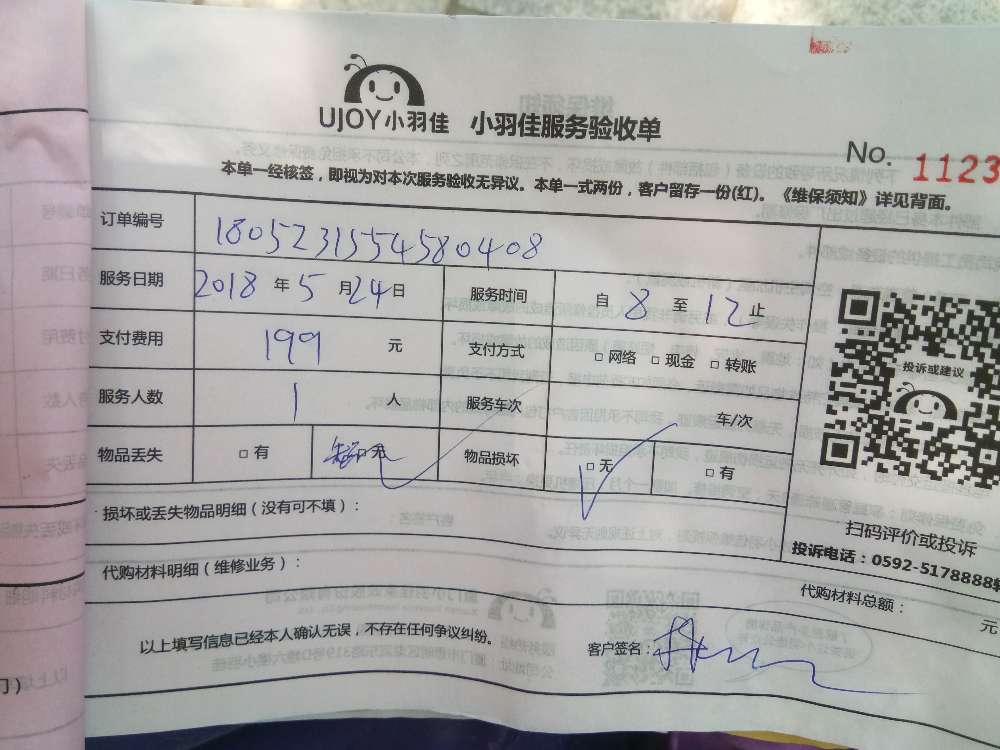 UJOY小羽佳 小羽佳服务验收单
No. 1123
本单一经核签，即视为对本次服务验收无异议。本单一式两份，客户留存一份(红)。《维保须知》详见背面。
订单编号 1805231554580408
服务日期 2018 年 5 月 24 日 服务时间 自 8 至 12 止
支付费用 199 元 支付方式 □ 网络 □ 现金 □ 转账
服务人数 1 人 服务车次 车/次
物品丢失 □ 有 □ 无 物品损坏 □ 无 □ 有
投诉或建议
损坏或丢失物品明细（没有可不填）：
扫码评价或投诉
投诉电话：0592-5178888转
代购材料明细（维修业务）：
代购材料总额： 元
以上填写信息已经本人确认无误，不存在任何争议纠纷。
客户签名：